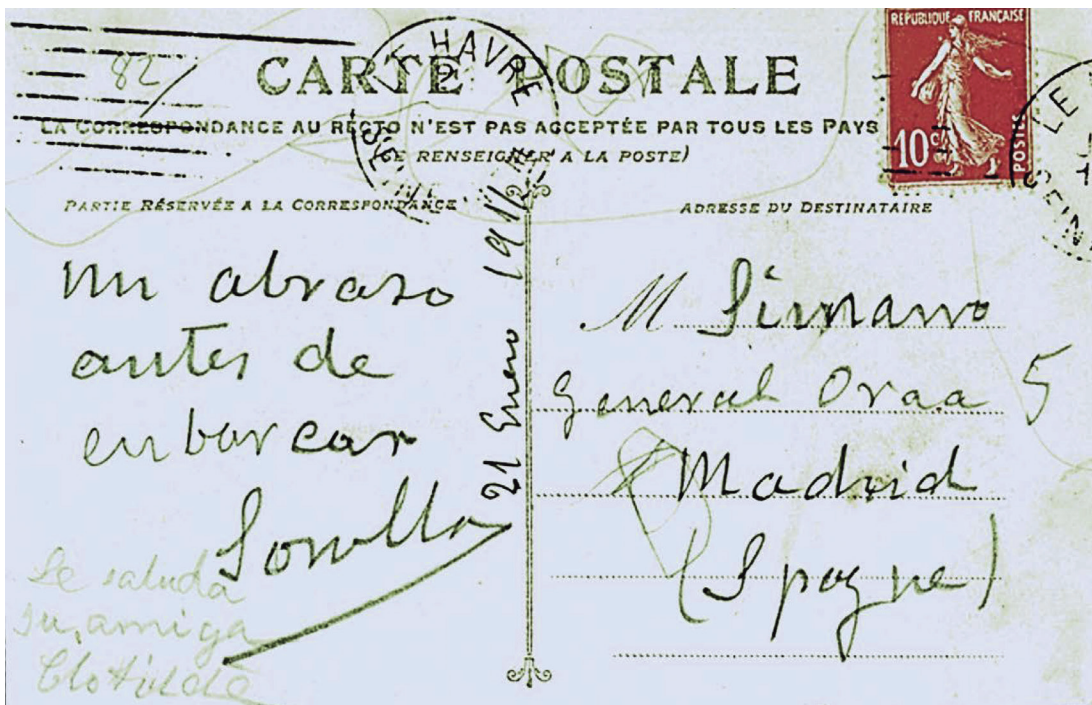 82
LE HAVRE
CARTE POSTALE
LA CORRESPONDANCE AU RECTO N'EST PAS ACCEPTÉE PAR TOUS LES PAYS
(SE RENSEIGNER A LA POSTE)
REPUBLIQUE FRANÇAISE
10 c.
POSTES
LE
PARTIE RÉSERVÉE A LA CORRESPONDANCE
un abraso
antes de
enbarcar
Sorolla
Le saluda
su amiga
Clotilde
21 Enero 1911
ADRESSE DU DESTINATAIRE
M
General Oraa 5
Madrid
(Spagne)